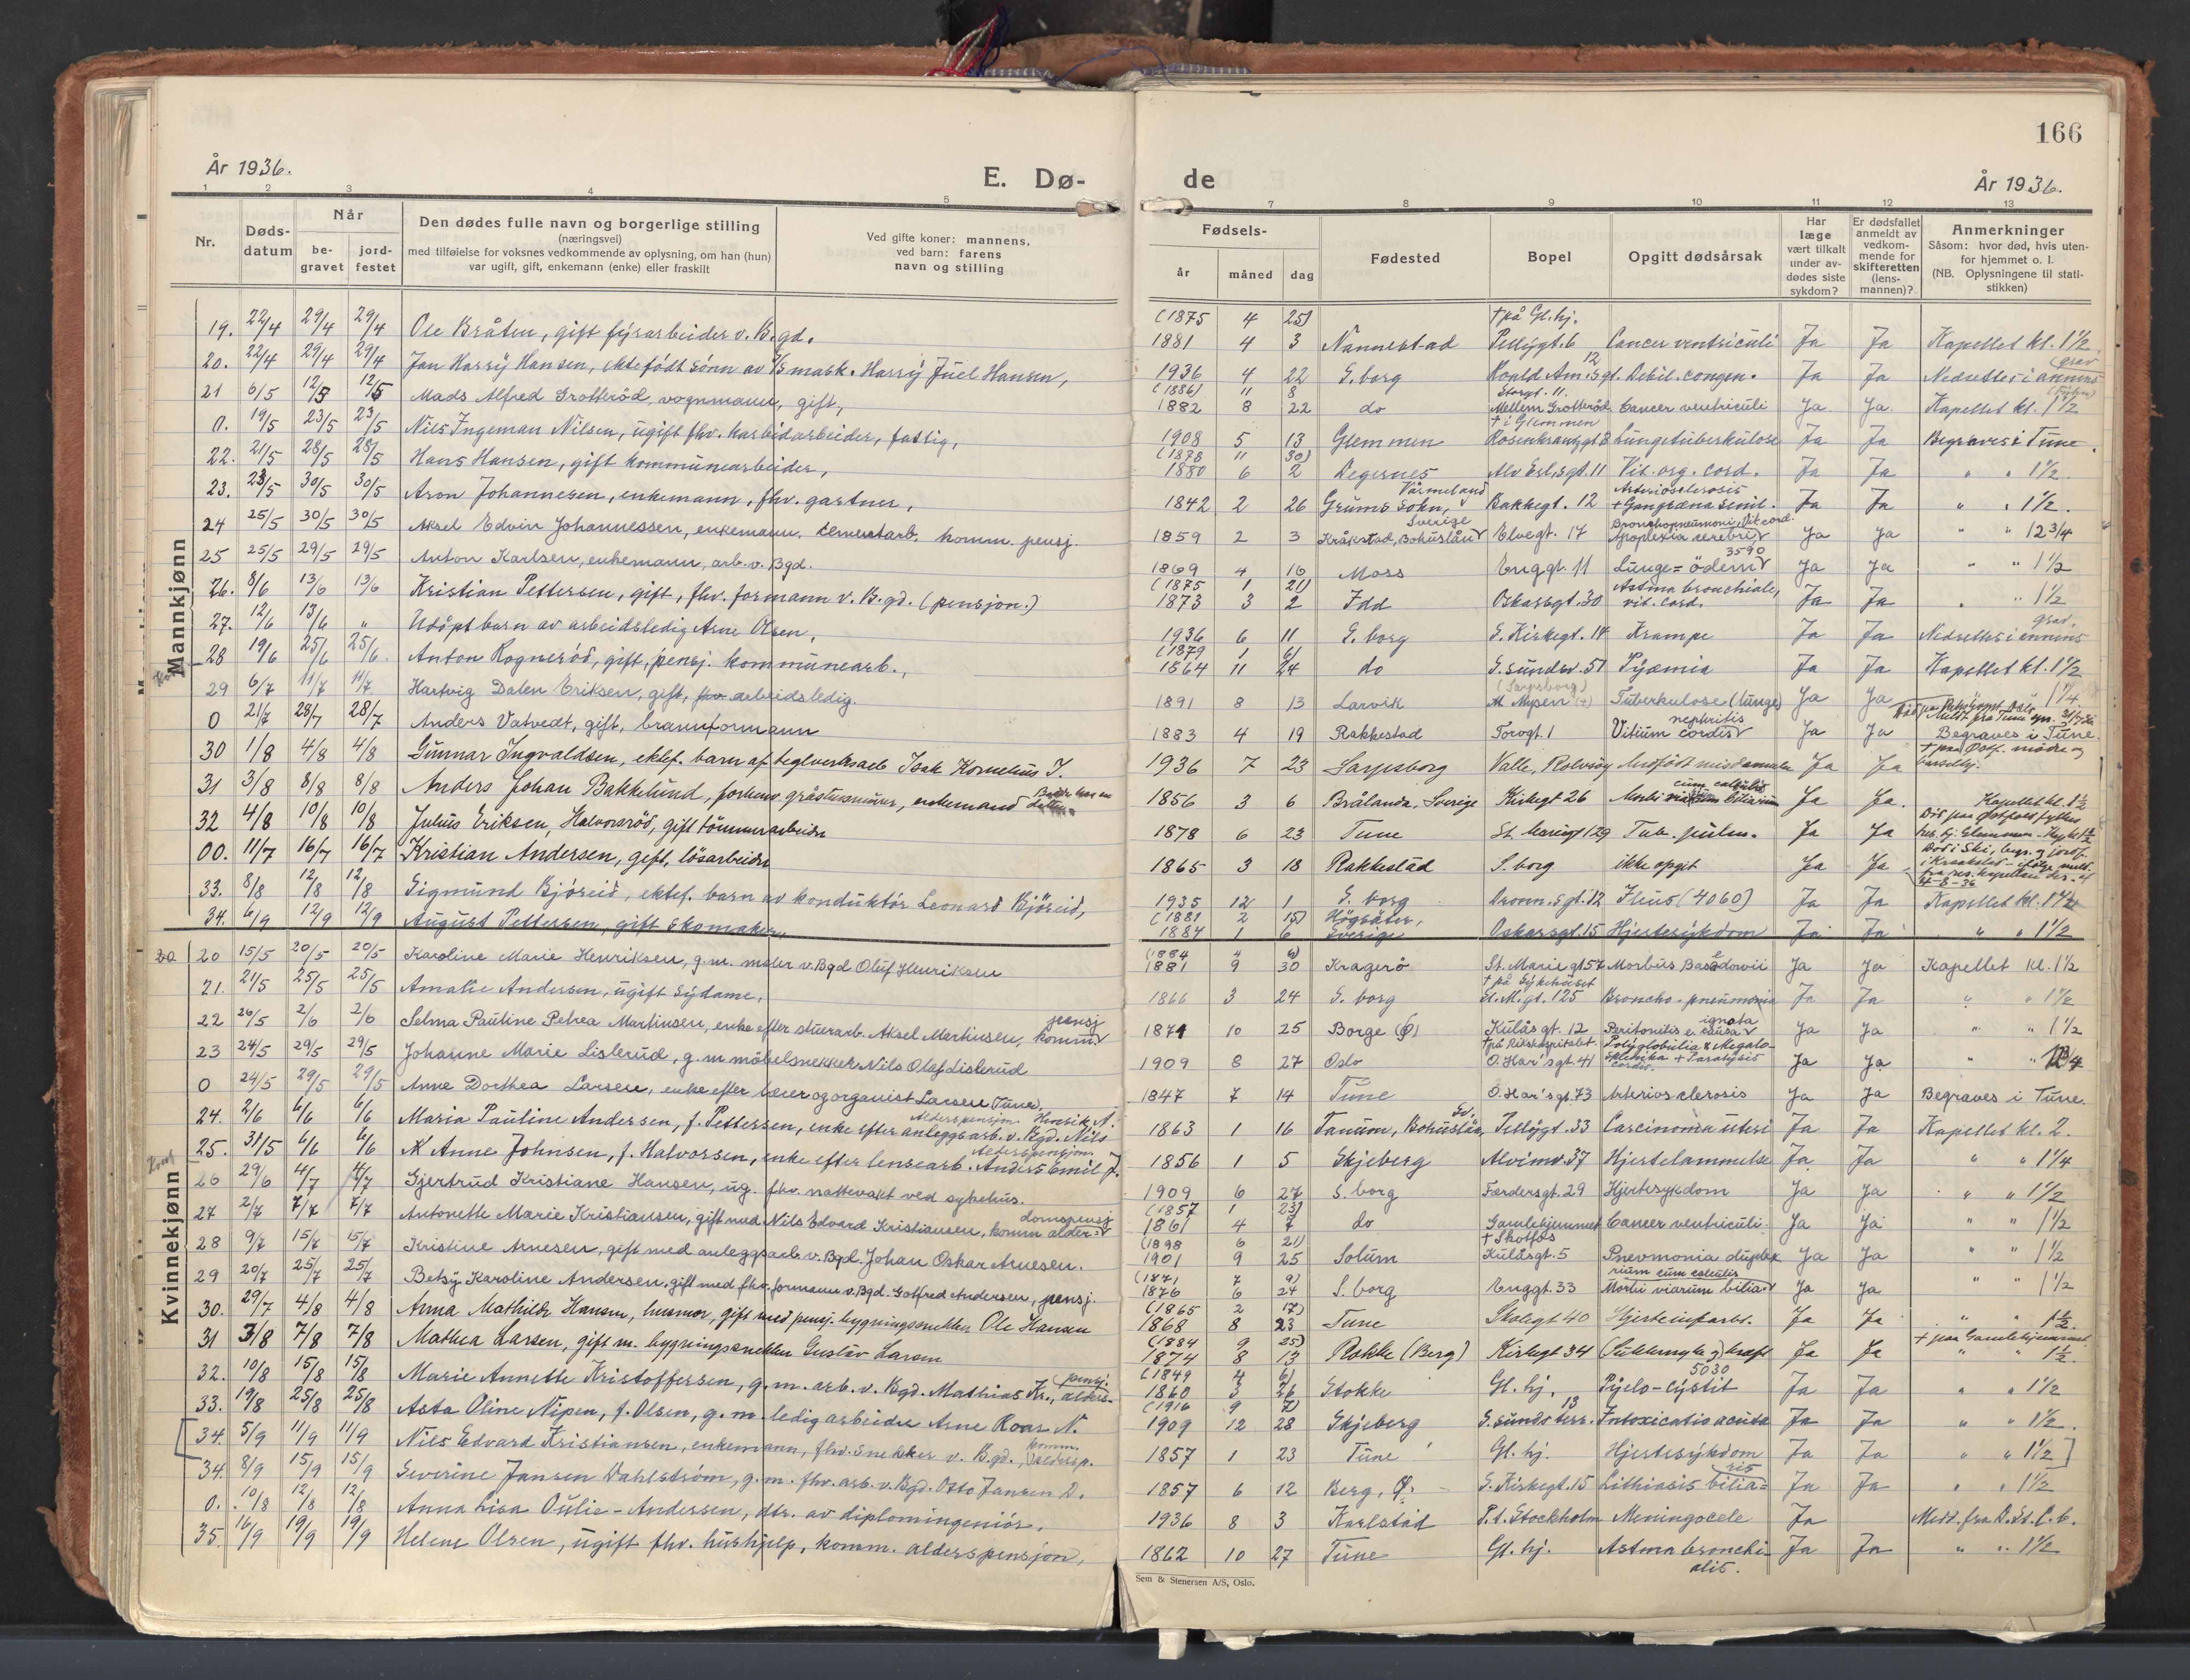 166
År 1936.
E. Dø-
de
År 1936.
1 2 3 4 5 7 8 9 10 11 12 13
Nr.
Døds-
datum
Når
be-
gravet
jord-
festet
Den dødes fulle navn og borgerlige stilling
(næringsvei)
med tilføielse for voksnes vedkommende av oplysning, om han (hun)
var ugift, gift, enkemann (enke) eller fraskilt
Ved gifte koner: mannens,
ved barn: farens
navn og stilling
Fødsels-
år måned dag
Fødested
Bopel
Opgitt dødsårsak
Har
læge
vært tilkalt
under av-
dødes siste
sykdom?
Er dødsfallet
anmeldt av
vedkom-
mende for
skifteretten
(lens-
mannen)?
Anmerkninger
Såsom: hvor død, hvis uten-
for hjemmet o. l.
(NB. Oplysningene til stati-
stikken)
Mannkjønn
(1875 4 25) † på Gl.hj.
19. 22/4 29/4 29/4 Ole Bråten, gift fyrarbeider v. B.gd. 1881 4 3 Nannestad Pellygt. 6 Cancer ventriculi Ja Ja Kapellet kl. 1 1/2
20. 22/4 29/4 29/4 Jan Harry Hansen, ektefødt sønn av mask. Harry Juel Hansen, 1936 4 22 S.borg Roald Am.s gt. 12 Debil. congen. Ja Ja Nedsettes i annens grav
(1886) 11 8 Storgt. 11.
21 6/5 12/5 12/5 Mads Alfred Grotterød, vognmann, gift, 1882 8 22 do Mellem Grotterød Cancer ventriculi Ja Ja Kapellet kl. 1 1/2
† i Glemmen
0. 19/5 23/5 23/5 Nils Ingeman Nilsen, ugift fhv. karbidarbeider, fattig, 1908 5 13 Glemmen Rosenkrantzgt 8 Lungetuberkulose Ja Ja Begraves i Tune
(1878 11 30)
22. 21/5 28/5 28/5 Hans Hansen, gift kommunearbeider, 1880 6 2 Degernes Alv Erl.sgt. 11 Vit. org. cord. Ja Ja " " 1 1/2
23. 23/5 30/5 30/5 Aron Johannesen, enkemann, fhv. gartner, 1842 2 26 Grums sokn, Värmeland Sverige Bakkegt. 12 Arteriosclerosis + Gangræna senil. Ja Ja " " 1 1/2
24 25/5 30/5 30/5 Aksel Edvin Johannessen, enkemann, cementarb. komm. pensj. 1859 2 3 Kråkstad, Bohuslän Elvegt. 17 Bronchopneumoni, Vit cord. Apoplexia cerebri Ja Ja " " 12 3/4
25 25/5 29/5 29/5 Anton Karlsen, enkemann, arb. v. Bgd. 1869 4 16 Moss Enggt. 11 3590 Lunge=ödem Ja Ja " " 1 1/2
(1875 1 21)
26. 8/6 13/6 13/6 Kristian Pettersen, gift, fhv. formann v. B.gd. (pensjon.) 1873 3 2 Idd Oskarsgt. 30 Astma bronchiale, vit. cord. Ja Ja " " 1 1/2
27. 12/6 13/6 " Udöpt barn av arbeidsledig Arne Olsen, 1936 6 11 S. borg S. Kirkegt. 14 Krampe Ja Ja Nedsettes i annens grav.
(1879 1 6)
28 19/6 25/6 25/6 Anton Rognerød, gift, pensj. kommunearb., 1864 11 24 do S. sundsv. 51 Pyæmia Ja Ja Kapellet kl. 1 1/2
29 6/7 11/7 11/7 Hartvig Dalen Eriksen, gift, fhv arbeidsledig. 1891 8 13 Larvik (Sarpsborg) Mysen Tuberkulose (lunge) Ja Ja 1 1/4
0 21/7 28/7 28/7 Anders Vatvedt, gift, brannformann 1883 4 19 Rakkestad Torogt. 1 nephritis Vitium cordis Ja Ja Begraves i Tune
30 1/8 4/8 4/8 Gunnar Ingvaldsen, ektef. barn af teglverksarb Isak Kornelius I. 1936 7 23 Sarpsborg Valle, Rolvsøy Medfödt misdannelse Ja Ja
31 3/8 8/8 8/8 Anders Johan Bakkelund, forhenv. gråstensmurer, enkemand 1856 3 6 Brålanda, Sverige Kirkegt 26 cum calculis Morbi viarum biliarium Ja Ja Kapellet kl. 1 1/2
32 4/8 10/8 10/8 Julius Eriksen, Halvorsröd, gift tömmerarbeider 1878 6 23 Tune St. Mariegt 129 Tub. pulm. Ja Ja Död paa Østfold fylkes
00. 11/7 16/7 16/7 Kristian Andersen, gift, lösarbeider 1865 3 18 Rakkestad S. borg ikke opgit Ja Ja Död i Ski, begr. og jordf. i Kraakstad
33. 8/8 12/8 12/8 Sigmund Björeid, ektef. barn av konduktör Leonard Björeid, 1935 12 1 S. borg Dronn.sgt. 12 Ileus (4060) Ja Ja Kapellet kl. 1 1/2
(1881 2 15)
34. 6/9 12/9 12/9 August Pettersen, gift skomaker, 1884 1 6 Högsäter, Sverige Oskarsgt. 15 Hjertesykdom Ja Ja " " 1 1/2
Kvinnekjønn
(1884 4 4)
20 20 15/5 20/5 20/5 Karoline Marie Henriksen, g. m. maler v. Bgd Oluf Henriksen 1881 9 30 Kragerö St. Marie gt 57 Morbus Basedowii Ja Ja Kapellet kl. 1 1/2
21 21/5 25/5 25/5 Amalie Andersen, ugift sydame, 1866 3 24 S. borg † på Sykehuset St. M.gt. 125 Broncho-pneumonia Ja Ja " " 1 1/2
22 26/5 2/6 2/6 Selma Pauline Petrea Martinsen, enke efter stuerarb. Aksel Martinsen, komm. pensj 1871 10 25 Borge (Ø) Kulåsgt. 12 Peritonitis e. causa ignota Ja Ja " " 1 1/2
23 24/5 29/5 29/5 Johanne Marie Lislerud, g. m möbelsnekker Nils Olaf Lislerud 1909 8 27 Oslo † på Rikshospitalet O. Har'sgt. 41 Polyglobulia & Megalo- splenika + Paralysis cordis. Ja Ja " "
0 24/5 29/5 29/5 Anne Dorthea Larsen, enke efter lærer og organist Larsen (Tune) 1847 7 14 Tune O. Har'sgt. 73 Arteriosclerosis Ja Ja Begraves i Tune.
24. 2/6 6/6 6/6 Maria Pauline Andersen, f. Pettersen, enke efter anleggsarb. v. Bgd. Nils Henrik A. Alderspensjon 1863 1 16 Tanum, Bohuslän, Sv. Pellygt. 33 Carcinoma uteri Ja Ja Kapellet kl. 2.
25. 31/5 6/6 6/6 Anne Johnsen, f. Halvorsen, enke efter lensearb. Anders Emil J. Alderspensjon 1856 1 5 Skjeberg Alvimv. 37 Hjertelammelse Ja Ja " " 1 1/4
26 29/6 4/7 4/7 Gjertrud Kristiane Hansen, ug. fhv. nattevakt ved sykehus. 1909 6 27 S. borg Færdersgt. 29 Hjertesykdom Ja Ja " " 1 1/2
(1857 1 23)
27 2/7 7/7 7/7 Antonette Marie Kristiansen, gift med Nils Edvard Kristiansen, komm alder= domspensj 1861 4 7 do Gamlehjemmet Cancer ventriculi. Ja Ja " " 1 1/2
(1898 6 21) † Skotfos
28 9/7 15/7 15/7 Kristine Arnesen, gift med anleggsarb. v. Bgd. Johan Oskar Arnesen. 1901 9 25 Solum Kulåsgt. 5 Pnevmonia duplex Ja Ja " " 1 1/2
(1871 7 9)
29 20/7 25/7 25/7 Betsy Karoline Andersen, gift med fhv. formann v. Bgd. Gotfred Andersen, pensj. 1876 6 24 S. borg Enggt. 33 Morbi viarum bilia= rium cum calculis Ja Ja " " 1 1/2
(1865 2 17)
30. 29/7 4/8 4/8 Anna Mathilde Hansen, husmor, gift med pensj. bygningssnekker Ole Hansen 1868 8 23 Tune Skolegt 40 Hjerteinfarkt. Ja Ja " " 1 1/2
(1884 9 25) † paa Gamlehjemmet
31 3/8 7/8 7/8 Mathea Larsen, gift m. bygningssnekker Gustav Larsen 1874 8 13 Rokke (Berg) Kirkegt 34 (Sukkersyke og) kræft Ja Ja " " 1 1/2
(1849 4 6)
32. 10/8 15/8 15/8 Marie Annette Kristoffersen, g. m. arb. v. Bgd. Mathias Kr., alders- pensj. 1860 3 26 Stokke Gl. hj. 5030 Pyelo-cystit Ja Ja " " 1 1/2
(1916 9 7)
33. 19/8 25/8 25/8 Asta Oline Nipen, f. Olsen, g. m. ledig arbeider Arne Roar N. 1909 12 28 Skjeberg S. sunds terr. 13 Intoxicatio acuta Ja Ja " " 1 1/2
[34. 5/9 11/9 11/9 Nils Edvard Kristiansen, enkemann, fhv. snekker v. B.gd., komm. aldersp. 1857 1 23 Tune Gl. hj. Hjertesykdom Ja Ja " " 1 1/2 ]
34. 8/9 15/9 15/9 Severine Jansen Dahlström, g. m. fhv. arb. v. Bgd. Otto Jansen D. 1857 6 12 Berg, Ø. S. Kirkegt. 15 Lithiasis bilia= ris Ja Ja " " 1 1/2
0. 10/8 12/8 12/8 Anna Lisa Oulie-Andersen, dtr. av diplomingeniör. 1936 8 3 Karlstad P.t. Stockholm Meningocele Ja Medd. fra D. St. C. b.
35. 16/9 19/9 19/9 Helene Olsen, ugift fhv. hushjelp, komm. alderspensjon, 1862 10 27 Tune Gl. hj. Astma bronchi- alis. Ja Ja " " 1 1/2
Sem & Stenersen A/S, Oslo.